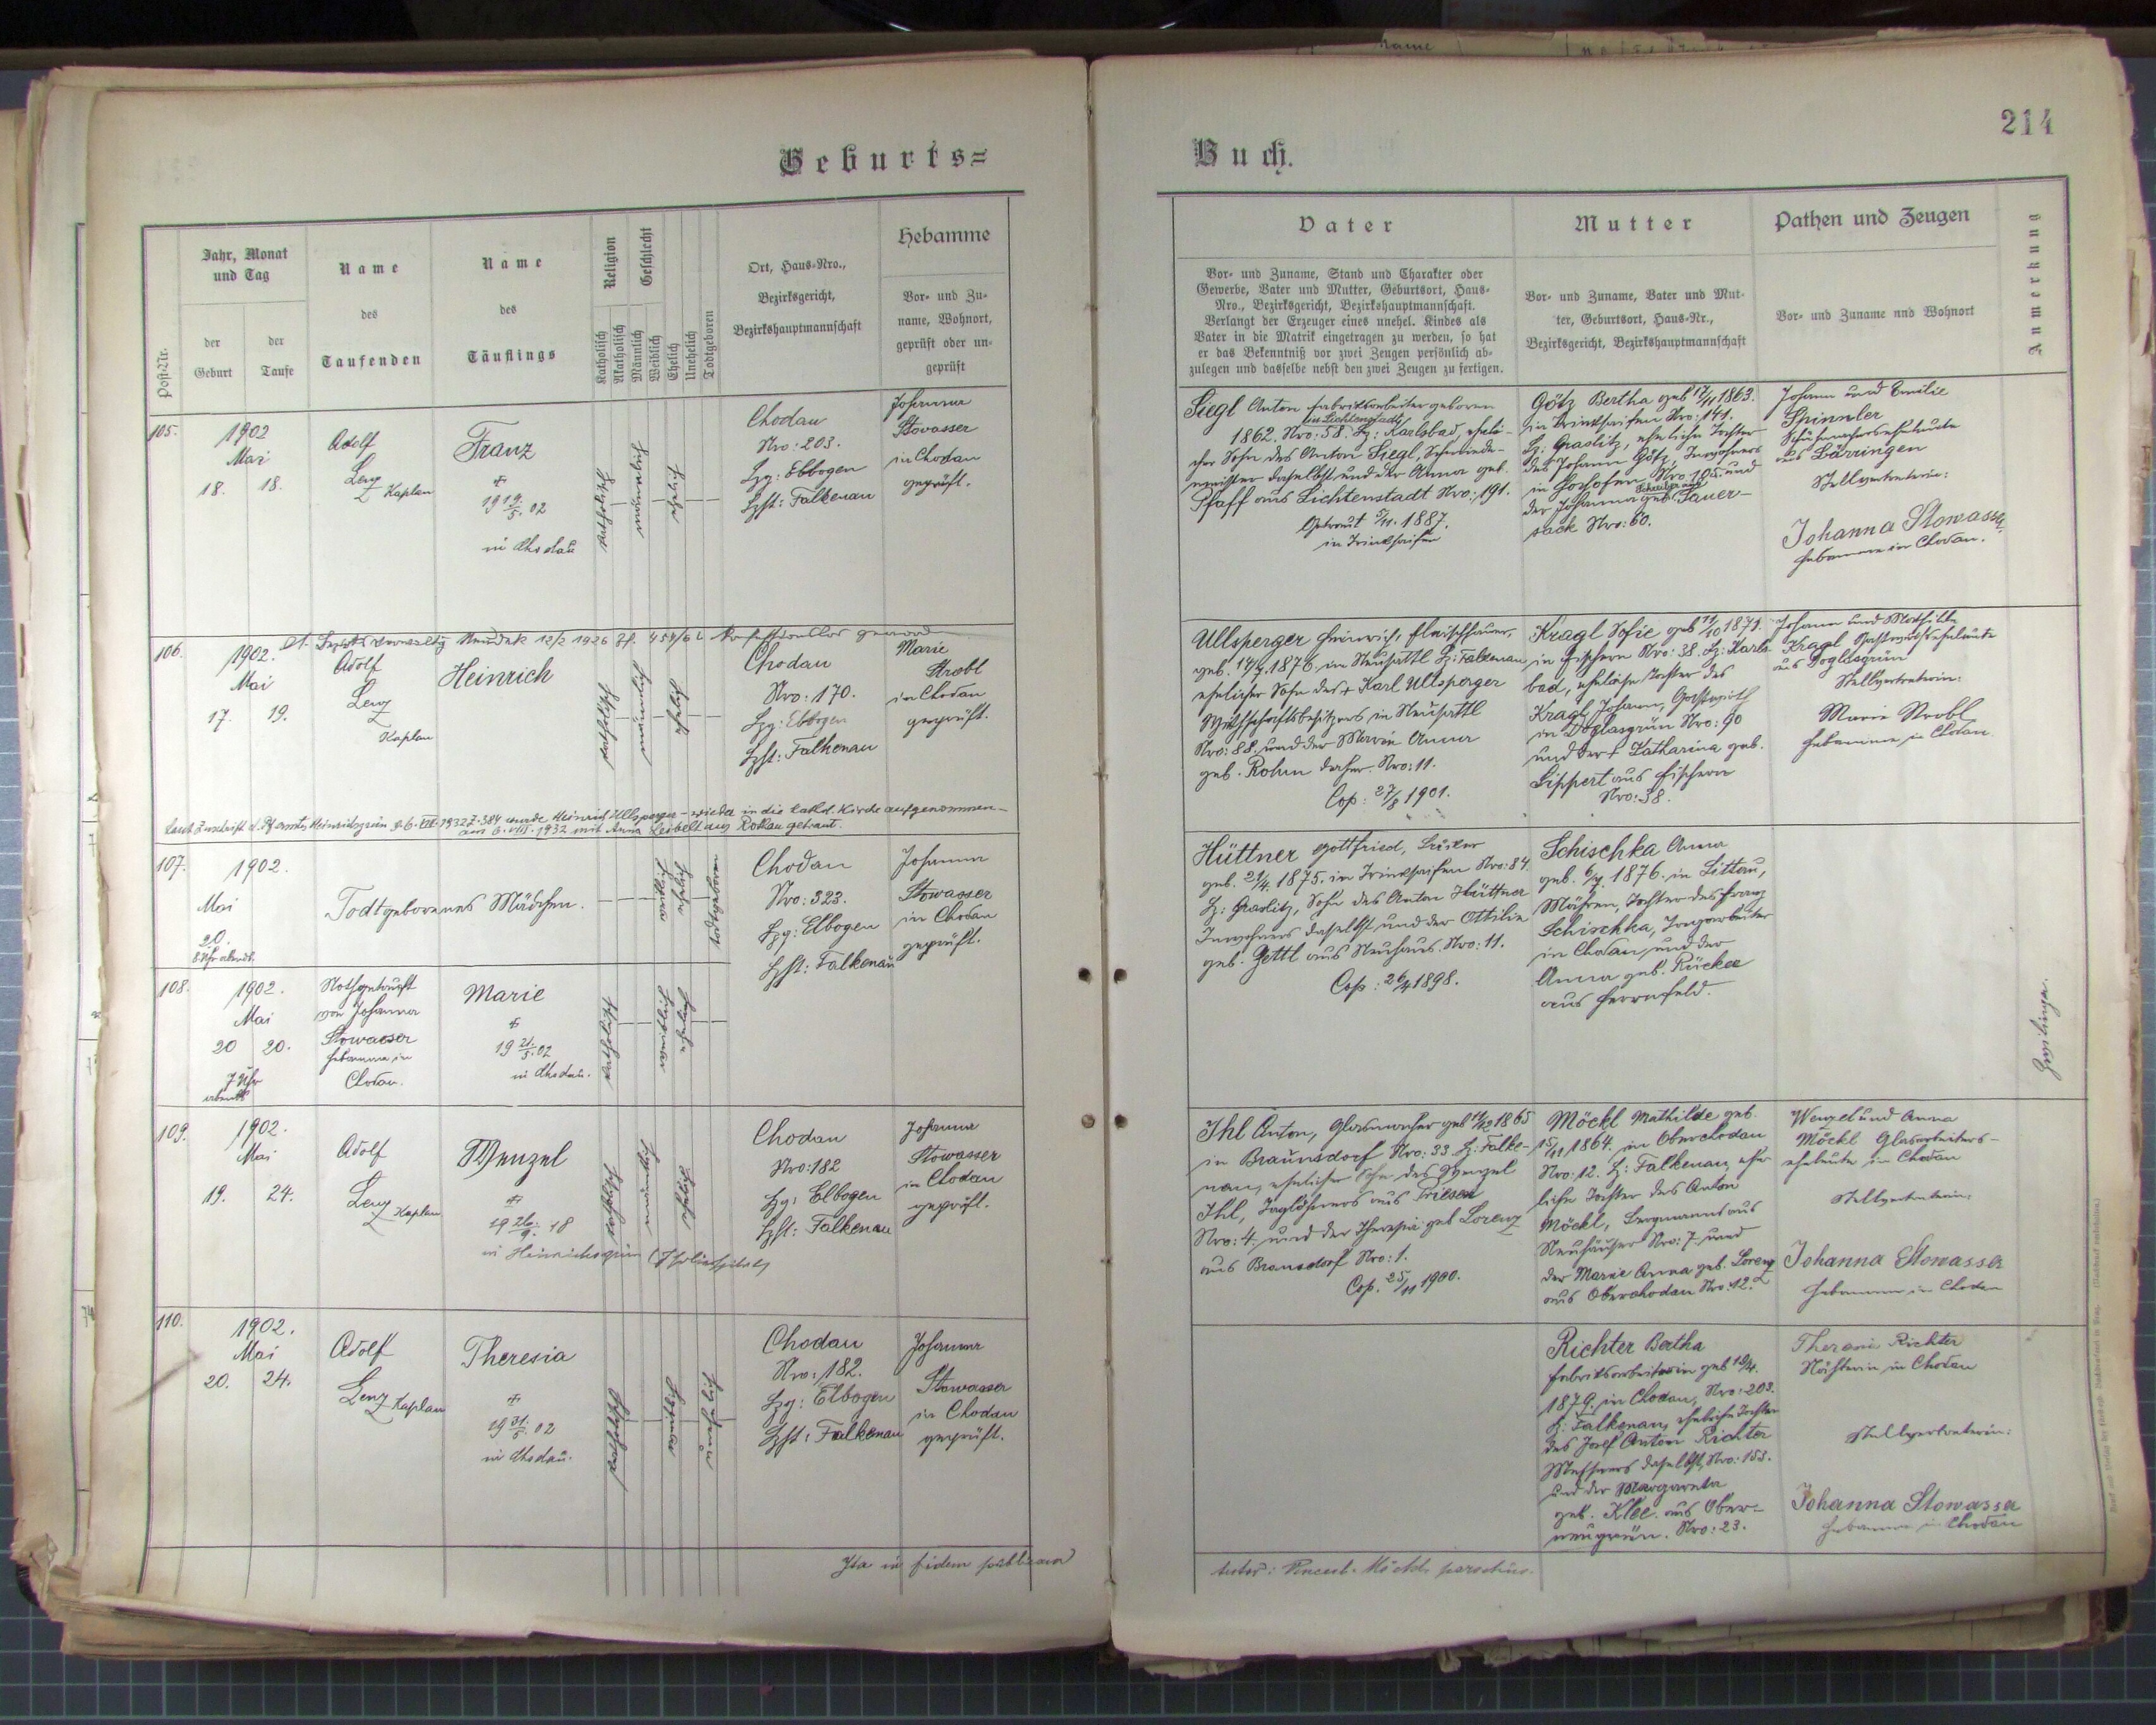 214
Geburts=
Buch.
Post-Nr.
Jahr, Monat
und Tag
der
Geburt
der
Taufe
Name
des
Taufenden
Name
des
Täuflings
Religion
Katholisch
Akatholisch
Geschlecht
Männlich
Weiblich
Ehelich
Unehelich
Todtgeboren
Ort, Haus-Nro.,
Bezirksgericht,
Bezirkshauptmannschaft
Hebamme
Vor- und Zu-
name, Wohnort,
geprüft oder un-
geprüft
Vater
Vor- und Zuname, Stand und Charakter oder
Gewerbe, Vater und Mutter, Geburtsort, Haus-
Nro., Bezirksgericht, Bezirkshauptmannschaft.
Verlangt der Erzeuger eines unehel. Kindes als
Vater in die Matrik eingetragen zu werden, so hat
er das Bekenntniß vor zwei Zeugen persönlich ab-
zulegen und dasselbe nebst den zwei Zeugen zu fertigen.
Mutter
Vor- und Zuname, Vater und Mut-
ter, Geburtsort, Haus-Nr.,
Bezirksgericht, Bezirkshauptmannschaft
Pathen und Zeugen
Vor- und Zuname und Wohnort
Anmerkung
105.
1902
Mai
18. 18.
Adolf
Lenz
Kaplan
Franz
19 19/5. 02
in Chodau
katholisch
männlich
ehelich
Chodau
Nro: 203.
Bzg: Elbogen
Bzht: Falkenau
Johanna
Stowasser
in Chodau
geprüft.
Siegl Anton Fabriksarbeiter geboren
in Lichtenstadt
1862. Nro: 58. Bz: Karlsbad, eheli-
cher Sohn des Anton Siegl, Schmiede-
meister daselbst und der Anna geb.
Pfaff aus Lichtenstadt Nro: 191.
Getraut 5/11. 1887.
in Trinkseifen
Götz Bertha geb 17/11 1863.
in Trinkseifen Nro: 141.
Bz. Graslitz, eheliche Tochter
des Johann Götz, Inwohners
in Hochofen Nro 105. und
der Johanna geb. Sauer-
sack Nro: 60.
Johann und Emilie
Spinnler
Schuhmacherseheleute
aus Bärringen
Stellvertreterin:
Johanna Stowasser
Hebamme in Chodau.
106.
1902.
Mai
17. 19.
Adolf
Lenz
Kaplan
Neudek 12/2 1926 konfessionslos
Heinrich
katholisch
männlich
ehelich
Chodau
Nro: 170.
Bzg: Elbogen
Bzht: Falkenau
Marie
Strobl
in Chodau
geprüft.
Ullsperger Heinrich, Fleischhauer,
geb. 14/7. 1876. in Neusattl Bz: Falkenau
ehelicher Sohn des + Karl Ullsperger
Wirthschaftsbesitzers in Neusattl
Nro: 88. und der Maria Anna
geb. Rohm daher. Nro: 11.
Cop: 27/8 1901.
Kragl Sofie geb 11/10 1871.
in Fischern Nro: 38. Bz: Karls-
bad, eheliche Tochter des
Kragl Johann, Gastwirth
in Doglasgrün Nro: 90
und der + Katharina geb.
Lippert aus Fischern
Nro: 38.
Johann und Mathilde
Kragl Gastwirtseheleute
aus Doglasgrün
Stellvertreterin:
Marie Strobl
Hebamme in Chodau
Laut Zuschrift d. Pfarramtes Heinrichsgrün 6. VIII. 1932 Z. 384 wurde Heinrich Ullsperger wieder in die kathol. Kirche aufgenommen -
am 6. VIII. 1932 mit Anna Leibelt aus Rossau getraut.
107.
1902.
Mai
20.
8 Uhr abends.
Todtgeborenes Mädchen.
weiblich
ehelich
todtgeboren
Chodau
Nro: 323.
Bzg: Elbogen
Bzht: Falkenau
Johanna
Stowasser
in Chodau
geprüft.
Hüttner Gottfried,
geb. 21/4. 1875. in Trinkseifen Nro: 84.
Bz: Graslitz, Sohn des Anton Hüttner
Inwohners daselbst und der Ottilie
geb. Zettl aus Neuhaus. Nro: 11.
Cop: 26/4 1898.
Schischka Anna
geb. 6/7. 1876. in Littau,
Mähren, Tochter des Franz
Schischka,
in Chodau, und der
Anna geb. Rücker
aus Herrnfeld.
108.
1902.
Mai
20 20.
7 Uhr
abends
Nothgetauft
von Johanna
Stowasser
Hebamme in
Chodau.
Marie
19 21./5. 02
in Chodau.
katholisch
weiblich
ehelich
Zwillinge.
109.
1902.
Mai
19. 24.
Adolf
Lenz
Kaplan
Wenzel
19 26./9. 18
in Heinrichsgrün
katholisch
männlich
ehelich
Chodau
Nro: 182
Bzg: Elbogen
Bzht: Falkenau
Johanna
Stowasser
in Chodau
geprüft.
Ihl Anton, Glasmacher geb 11/12 1865
in Braunsdorf Nro: 33. Bz: Falke-
nau, ehelicher Sohn des Wenzel
Ihl, Taglöhners aus Triesen
Nro: 4. und der Theresia geb Lorenz
aus Bransdorf Nro: 1.
Cop. 25/11 1900.
Möckl Mathilde geb.
15/11 1864. in Oberchodau
Nro: 12. Bz: Falkenau, ehe-
liche Tochter des Anton
Möckl, Bergmanns aus
Neuhäuser Nro: 7. und
der Marie Anna geb. Lorenz
aus Oberchodau Nro: 12.
Wenzel und Anna
Möckl Glasarbeiters-
eheleute in Chodau
Stellvertreterin:
Johanna Stowasser
Hebamme in Chodau
110.
1902.
Mai
20. 24.
Adolf
Lenz Kaplan
Theresia
19 31./5. 02
in Chodau.
katholisch
weiblich
unehelich
Chodau
Nro: 182.
Bzg: Elbogen
Bzht: Falkenau
Johanna
Stowasser
in Chodau
geprüft.
Richter Bertha
Fabriksarbeiterin geb 19/4.
1879. in Chodau, Nro: 203.
Bz: Falkenau, eheliche Tochter
des Josef Anton Richter
Messners daselbst, Nro: 153.
und der Margareta
geb. Klee. aus Ober-
neugrün. Nro: 23.
Theresia Richter
Nähterin in Chodau
Stellvertreterin:
Johanna Stowasser
Hebamme in Chodau
Ita in fidem publicam
testor: Vincent. Möckl, parochus.